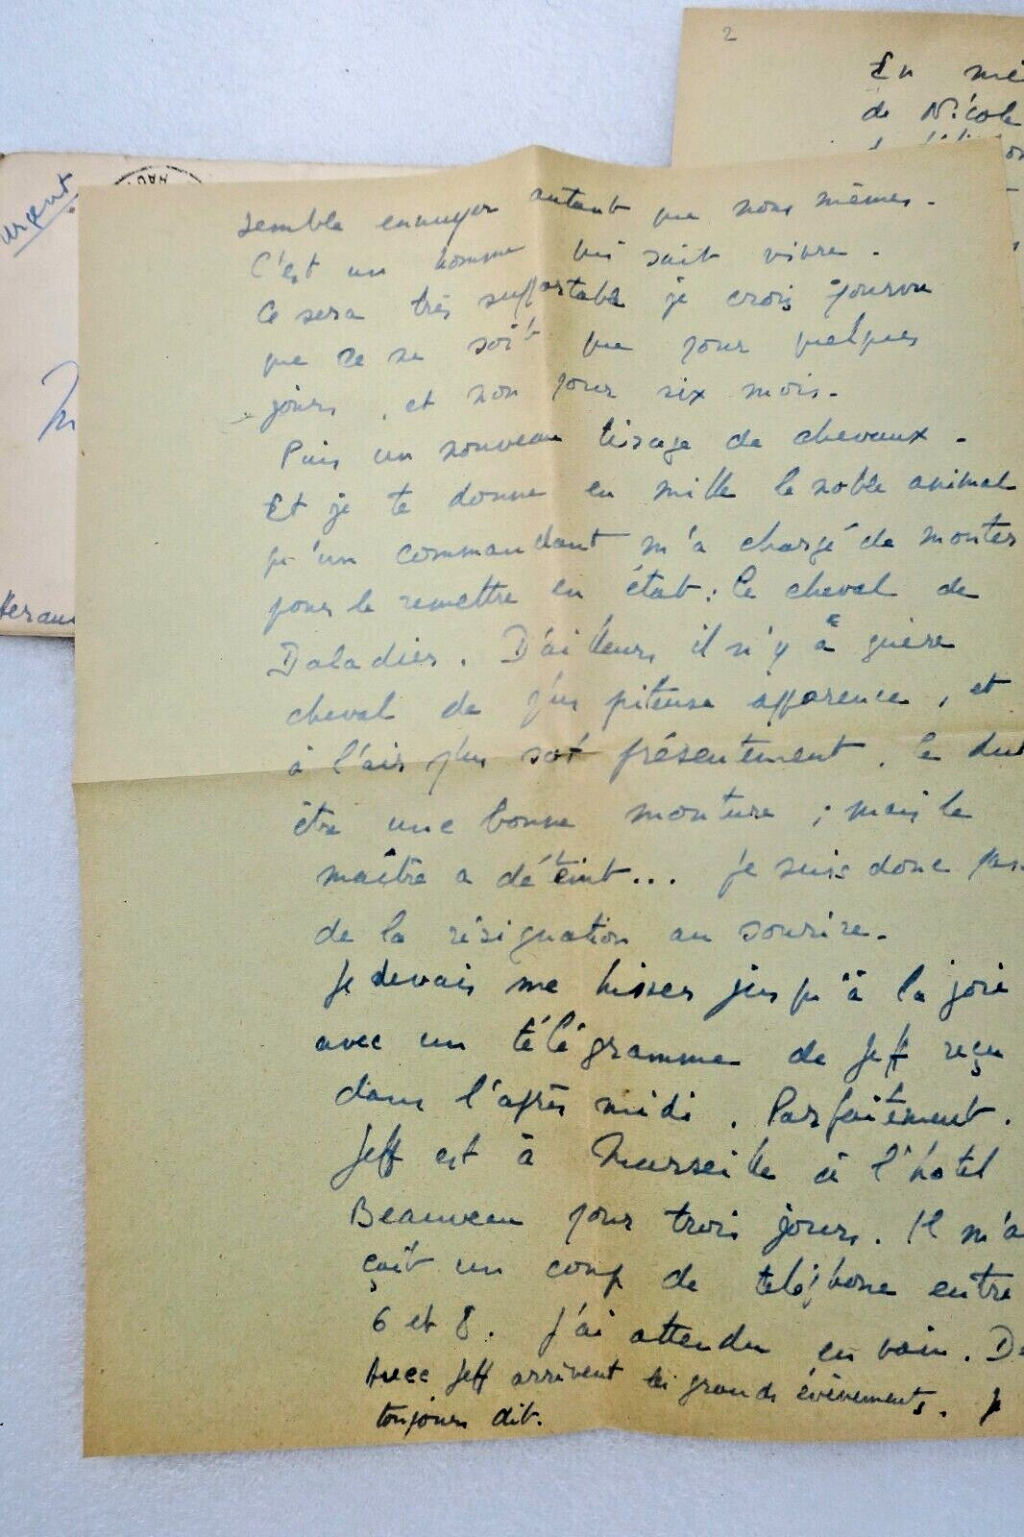 2
En mê
de Nicole
urgent
HAU
M
Herau
semble ennuyer autant que nous mêmes.
C'est un homme qui sait vivre.
Ce sera très supportable je crois pourvu
que ce ne soit que pour quelques
jours, et non pour six mois.
Puis un nouveau tissage de chevaux.
Et je te donne en mille le noble animal
qu'un commandant m'a chargé de monter
pour le remettre en état: le cheval de
Daladier. D'ailleurs il n'y a guère
cheval de plus piteuse apparence, et
à l'air plus sot présentement. Ce dut
être une bonne monture ; mais le
maître a déteint... je suis donc pas
de la résignation au sourire.
Je devais me hisser jusqu'à la joie
avec un télégramme de Jeff reçu
dans l'après midi. Parfaitement.
Jeff est à Marseille à l'hôtel
Beauveau pour trois jours. Il m'a
çait un coup de téléphone entre
6 et 8. J'ai attendu en vain. D
Avec Jeff arrivent les grands évènements. J
toujours dit.